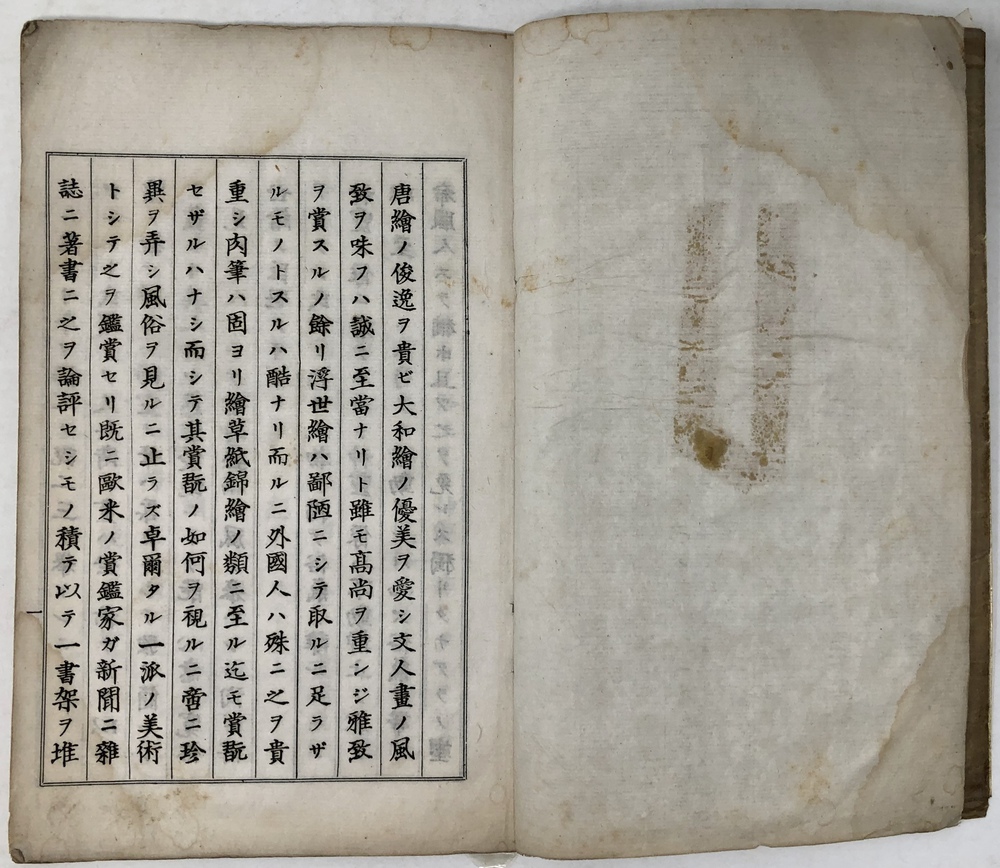 唐繪ノ俊逸ヲ貴ビ大和繪ノ優美ヲ愛シ文人畫ノ風
致ヲ味フハ誠ニ至當ナリト雖モ髙尚ヲ重ンジ雅致
ヲ賞スルノ餘リ浮世繪ハ鄙陋ニシテ取ルニ足ラザ
ルモノトスルハ酷ナリ而ルニ外國人ハ殊ニ之ヲ貴
重シ肉筆ハ固ヨリ繪草紙錦繪ノ類ニ至ル迄モ賞翫
セザルハナシ而シテ其賞翫ノ如何ヲ視ルニ啻ニ珍
異ヲ弄シ風俗ヲ見ルニ止ラズ卓爾タル一派ノ美術
トシテ之ヲ鑑賞セリ既ニ歐米ノ賞鑑家ガ新聞ニ雜
誌ニ著書ニ之ヲ論評セシモノ積テ以テ一書架ヲ堆
一